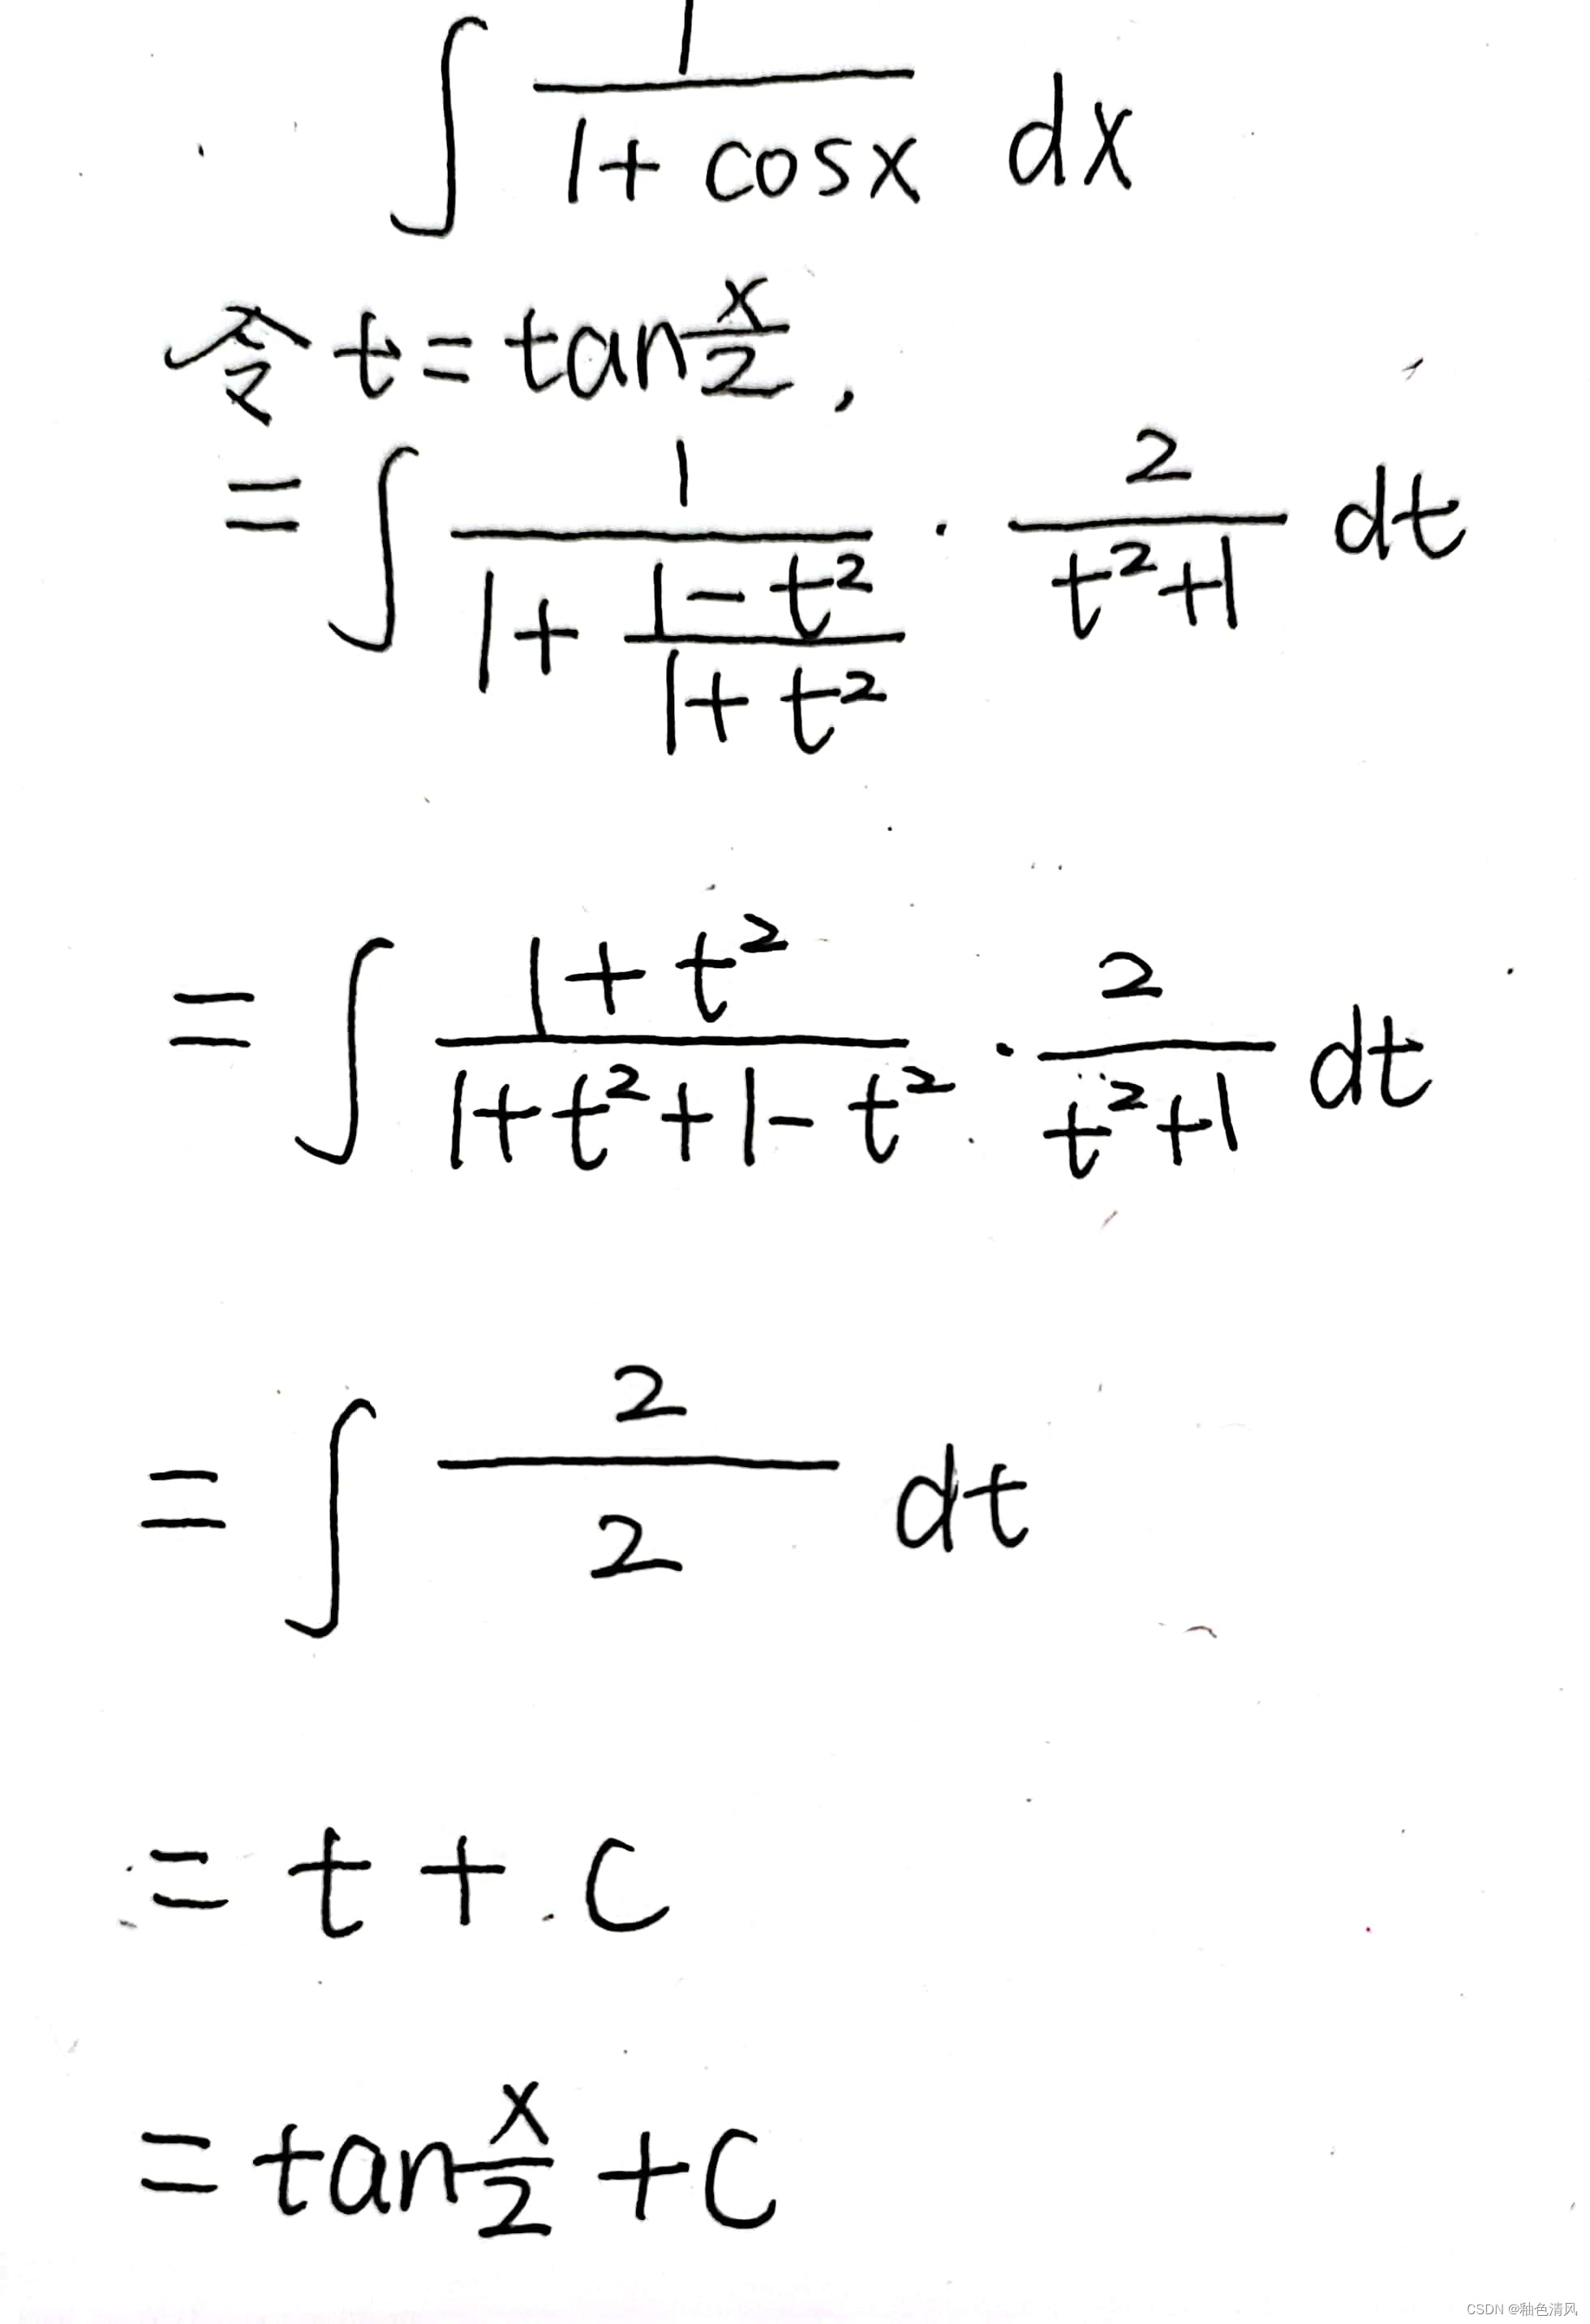 ∫ 1/(1+cosx) dx
令 t=tan x/2,
=∫ 1/(1+(1-t²)/(1+t²)) · 2/(t²+1) dt
=∫ (1+t²)/(1+t²+1-t²) · 2/(t²+1) dt
=∫ 2/2 dt
= t + C
= tan x/2 + C
CSDN @釉色清风